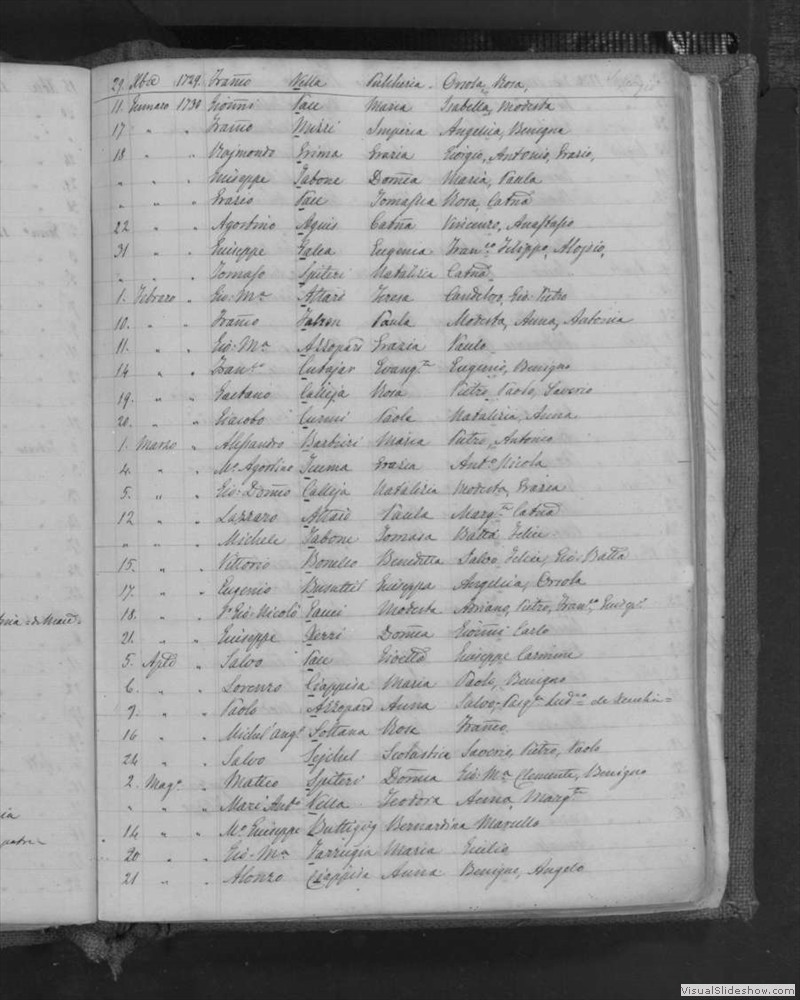 29. Xbre 1729. Franco Vella Pulcheria Orsola, Rosa,
11. Gennaro 1730 Gionni Pace Maria Isabella, Modesta
17 " " Franco Mizzi Imperia Angelica, Benigna
18 " " Raimondo Grima Grazia Giorgio, Antonio, Grazio,
" " " Giuseppe Tabone Domca Maria, Paula
" " " Grazio Pace Tomasua Rosa, Catna
22 " " Agostino Agius Catna Vincenzo, Anastasio
31 " " Giuseppe Galea Eugenia Franco Filippo, Aloysio,
" " " Tomaso Spiteri Natalizia Catna
1. Febraro " Gio: Ma Attard Teresa Candeloro, Gio: Pietro
10. " " Franco Paula Modesta, Anna, Antonia
11. " " Gio: Ma Azzopard Grazia Paulo
14 " " Franco Cutajar Evangta Eugenio, Benigno
19. " " Gaetano Calleja Rosa Pietro, Paolo, Saverio
20. " " Giacobo Curmi Paola Natalizia, Anna
1. Marzo " Alessandro Barbieri Maria Pietro, Antonio
4. " " Mo Agostino Grazia Anto Nicola
5. " " Gio: Domco Calleja Natalizia Modesta, Grazia
12 " " Lazzaro Attard Paula Margta Catna
" " " Michele Tabone Tomasa Batta Felice
15. " " Vittorio Borello Beneditta Salvo, Felice, Gio: Batta
17. " " Eugenio Busuttil Giuseppa Angelica, Orsola
18. " " Gio: Nicolò Modesta Adriano, Pietro, Franco, Giuspe
21. " " Giuseppe Zerri Domca Gionni Carlo
5. Aple " Salvo Pace Giuseppe Carmine
6. " " Lorenzo Ciappisa Maria Paolo, Benigno
9. " " Paolo Azzopard Anna Salvo
16 " " Michel' Ango Soltana Rose Franco,
24 " " Salvo Scolastica Saverio, Pietro, Paolo
2. Mago " Matteo Spiteri Domca Gio: Ma Clemente, Benigno
" " " Mari' Anto Vella Teodora Anna, Margta
14 " " Mo Giuseppe Buttigig Bernardina Marcello
20 " " Gio: Ma Farrugia Maria
21 " " Alonzo Ciappisa Anna Benigno, Angelo
VisualSlideshow.com